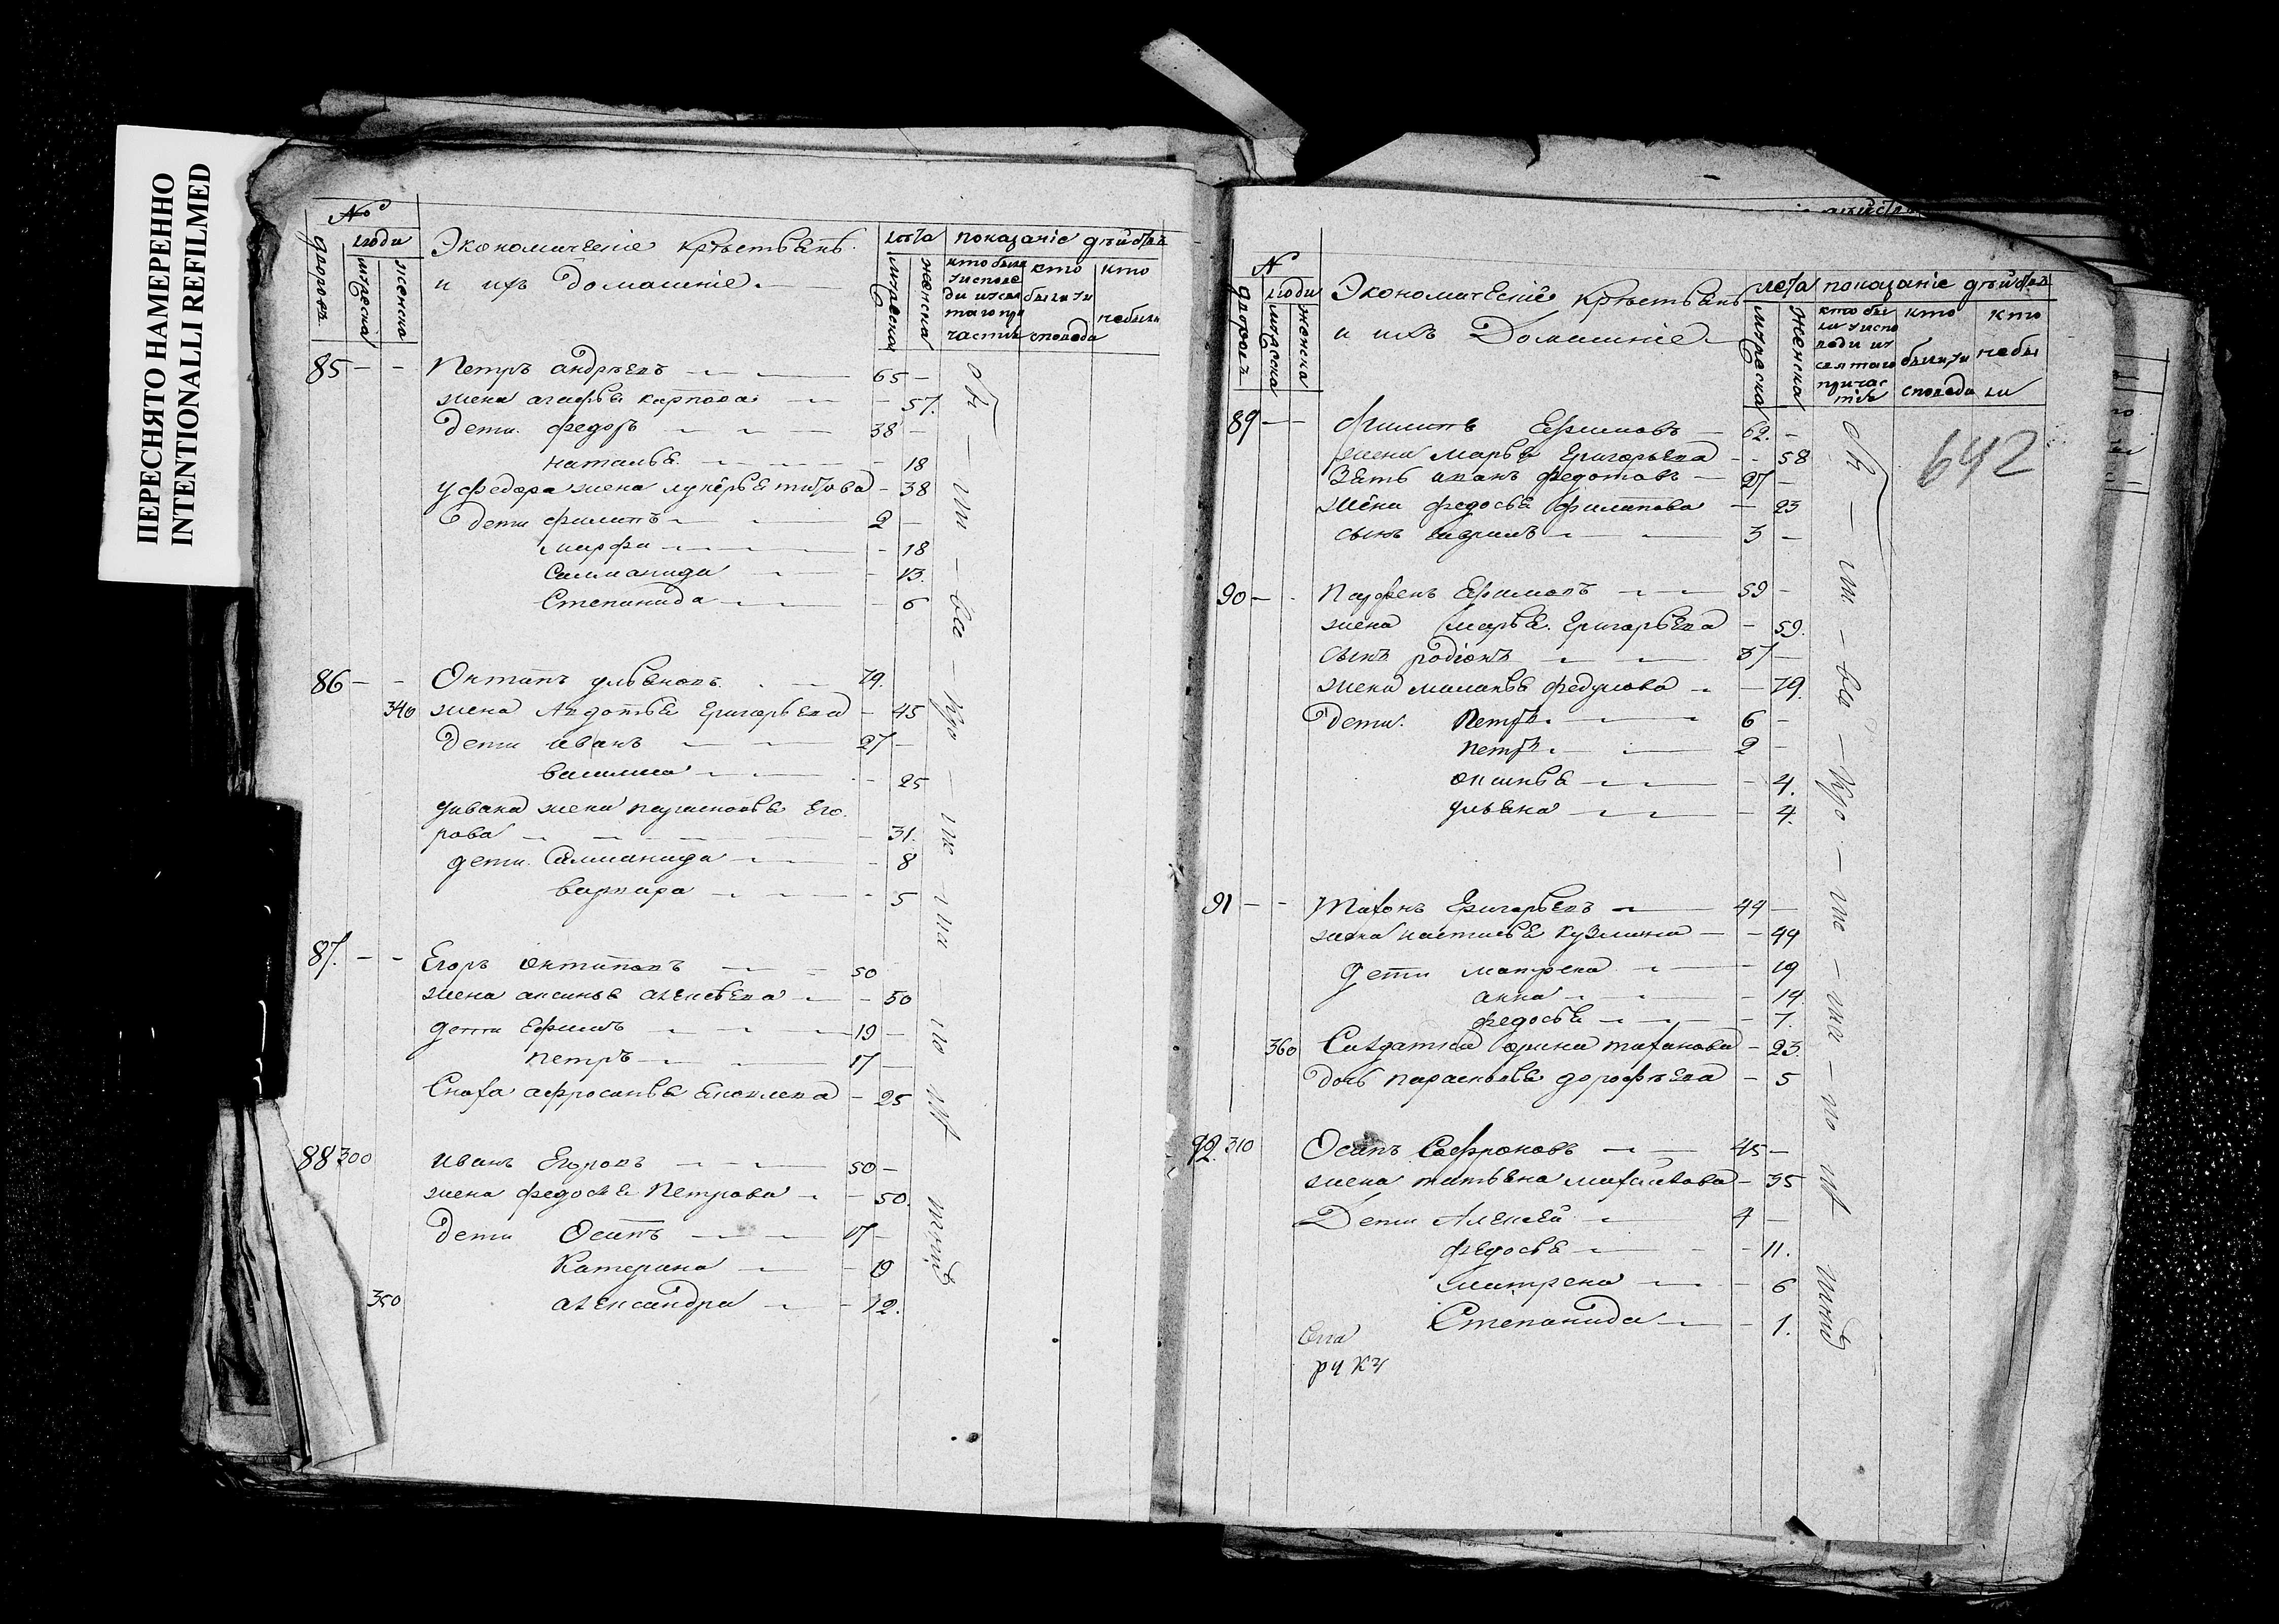 ПЕРЕСНЯТО НАМЕРЕННО
INTENTIONALLI REFILMED
№
дворовъ
люди
мужеска
женска
Экономическіе крѣстьянъ
и ихъ Домашніе
лѣта
мужеска
женска
показаніе дѣйства
кто были
кто
кто
небыли
85 Петръ андрѣевъ 65
жена агафья карпова 57.
Дети федоръ 38
наталья 18
у федора жена лукерья титова 38
Дети филипъ 2
марфа 18
Саламанида 13.
Степанида 6
86 Онтипъ ульяновъ 79.
340 жена Авдотья Григорьева 45
Дети иванъ 27
василиса 25
уивана жена парасковья Его
рова 31.
дети Саламанида 8
варвара 5
87. Егоръ онтиповъ 50
жена аксинья алексѣева 50
дети Ефимъ 19
петръ 17
Сноха афросинья 25
88 300 иванъ Егоровъ 50
жена федосья Петрова 50.
Дети Осипъ 17
Катерина 19
350 александра 12.
№
дворовъ
люди
мужеска
женска
Экономическіе крѣстьянъ
и ихъ Домашніе
лѣта
мужеска
женска
показаніе дѣйства
кто
кто
небы
ли
642
89 филипъ Ефимовъ 62.
жена марья Григорьева 58
Зять иванъ федотовъ 27
жена федосья филипова 23
сынъ гаврилъ 3
90 Парфенъ Ефимовъ 59
жена марья Григорьева 59.
сынъ родіонъ 37
жена маланья федулова
Дети. Петръ 6
петръ 2
оксинья 4.
ульяна 4.
91 Тихонъ Григорьевъ 44
жена настасья кузмина 44
дети матрена 19
анна 14
федосья 7.
360 Салдатка орина тихонова 23.
Дочь парасковья дорофѣева 5
92. 310 Осипъ Сафроновъ 45
жена татьяна михаилова 35
Дети Алексей 4
федосья 11.
матрена 6
Степанида 1.